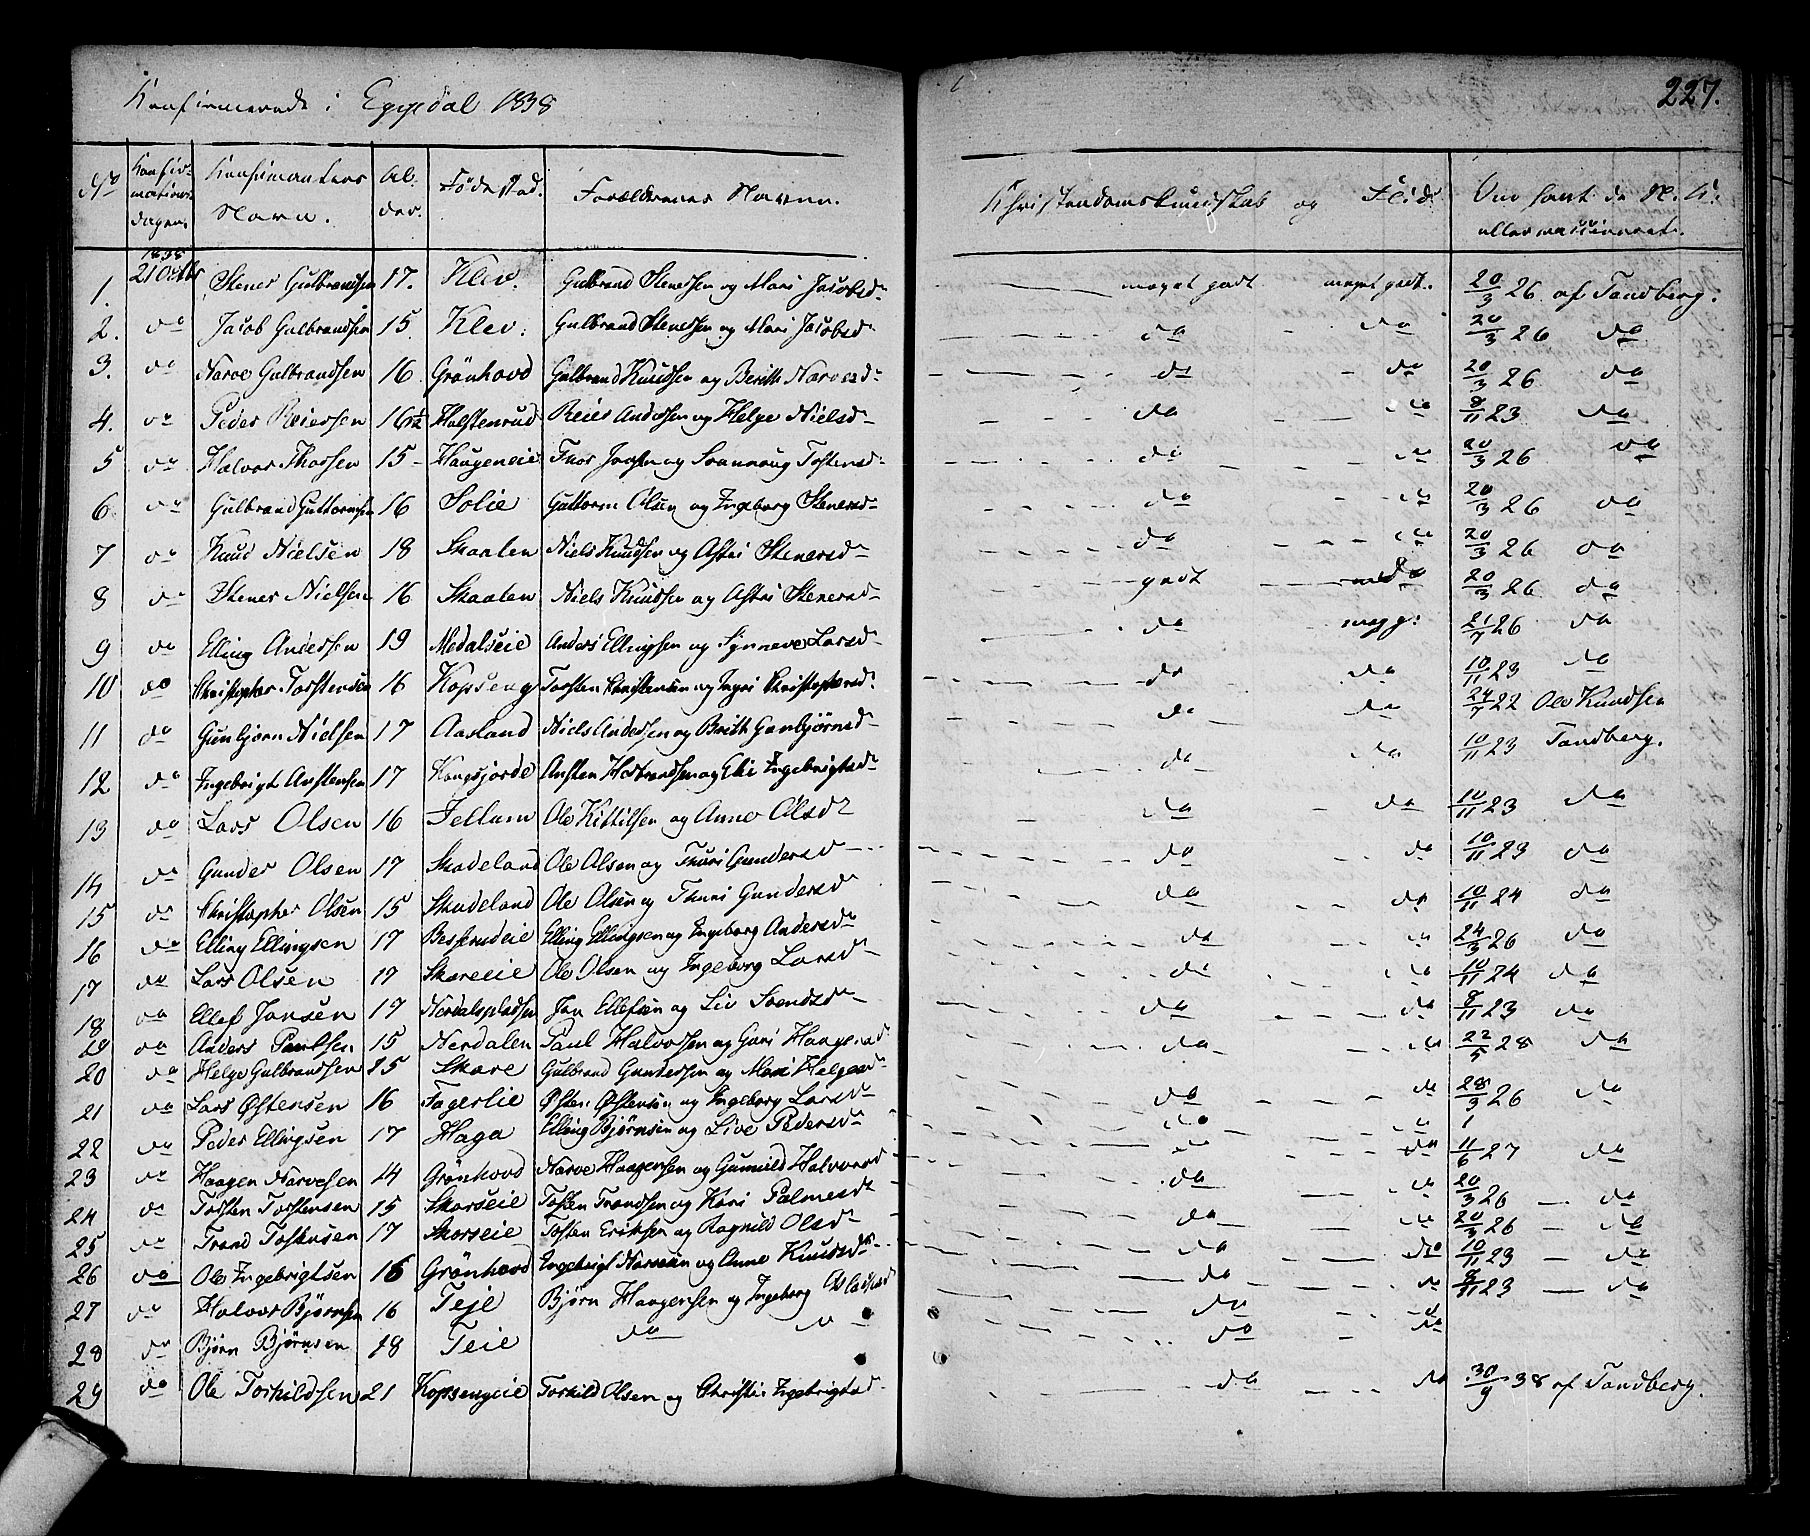 Konfirmerede i Eggedal 1838
227.
No Konfirmationsdagen. Konfirmantens Navn. Alder. Fødested. Forældrenes Navne. Christendomskundskab og Flid. Om hant de N. K. eller vaccineret.
1838
1. 21 Octbr Stener Gulbrandsen 17. Klev. Gulbrand Stenersen og Mari Jacobsd. meget godt meget godt. 20/3 26 af Tandberg.
2. do Jacob Gulbrandsen 15. Klev. Gulbrand Stenersen og Mari Jacobsd do do 20/3 26 do
3. do Narve Gulbrandsen 16 Grønhovd Gulbrand Knudsen og Berith Narvesd. do do 20/3 26 do
4. do Peder Reiersen 16½ Holstenrud Reier Andersen og Helge Nielsd. do do 8/11 23 do
5 do Halvor Thorsen 15 Haugeneie Thor og Svannaug Tostensd. do do 20/3 26 do
6 do Gulbrand Guttormsen 16 Solie Guttorm Olsen og Ingeborg Stenersd. do do 20/3 26 do
7 do Knud Nielsen 18 Skaalen Niels Knudsen og Astri Stenersd. do do 20/3 26 do
8 do Stener Nielsen 16 Skaalen Niels Knudsen og Astri Stenersd. godt do 20/3 26 do
9 do Elling Andersen 19 Medalseie Anders Ellingsen og Synneve Larsd. do meg g: 21/7 26 do
10 do Christopher Torstensen 16 Kopseng Torsten Christensen og Ingri Christophersd. do do 10/11 23 do
11 do Gunbjørn Nielsen 17 Aasland Niels Andersen og Brith Gunbjørnsd. do do 24/7 22 Ole Knudsen
12 do Ingebrigt Anstensen 17 Kongsjorde Ansten Herbrandsen og Eli Ingebrigtsd. do do 10/11 23 Tandberg.
13 do Lars Olsen 16 Jellum Ole Kittilsen og Anne Olsd. do do 10/11 23 do
14 do Gunder Olsen 17 Skadeland Ole Olsen og Thuri Gundersd do do 10/11 23 do
15 do Christopher Olsen 15 Skadeland Ole Olsen og Thuri Gundersd. do do 10/11 24 do
16 do Elling Ellingsen 17 Besserudeie Elling Ellingsen og Ingeborg Andersd. do do 24/3 26 do
17 do Lars Olsen 17 Skareeie Ole Olsen og Ingeborg Larsd. do do 10/11 24 do
18 do Ellef Jonsen 17 Nerdalspladsen Jon Ellefsen og Liv Svendsd. do do 8/11 23 do
19 do Anders Paulsen 15 Nerdalen Paul Halvorsen og Guri Haagensd do do 22/5 28 do
20 do Helge Gulbrandsen 15 Skare Gulbrand Gundersen og Mari Helgesd. do do 28/3 26 do
21 do Lars Østensen 16 Fagerlie Østen Østensen og Ingeborg Larsd. do do
22 do Peder Ellingsen 17 Haga Elling Bjørnsen og Live Pedersd. do do 11/6 27 do
23 do Haagen Narvesen 14 Grønhovd Narve Haagensen og Gunnild Halvorsd do do 20/3 26 do
24 do Torsten Torstensen 15 Skorseie Tosten Trondsen og Kari Palmesd. do do 20/3 26 do
25 do Trond Tostensen 17 Skorseie Tosten Eriksen og Ragnild Olsd. do do 10/11 23 do
26 do Ole Ingebrigtsen 16 Grønhovd Ingebrigt Narvesen og Anne Knudsd. do do 8/11 23 do
27 do Halvor Bjørnsen 16 Teje Bjørn Haagensen og Ingeborg do do
28 do Bjørn Bjørnsen 18 Teie do do do do
29 do Ole Torkildsen 21 Kopsengeie Torkild Olsen og Christi Ingebrigtsd. do do 30/9 38 af Tandberg.